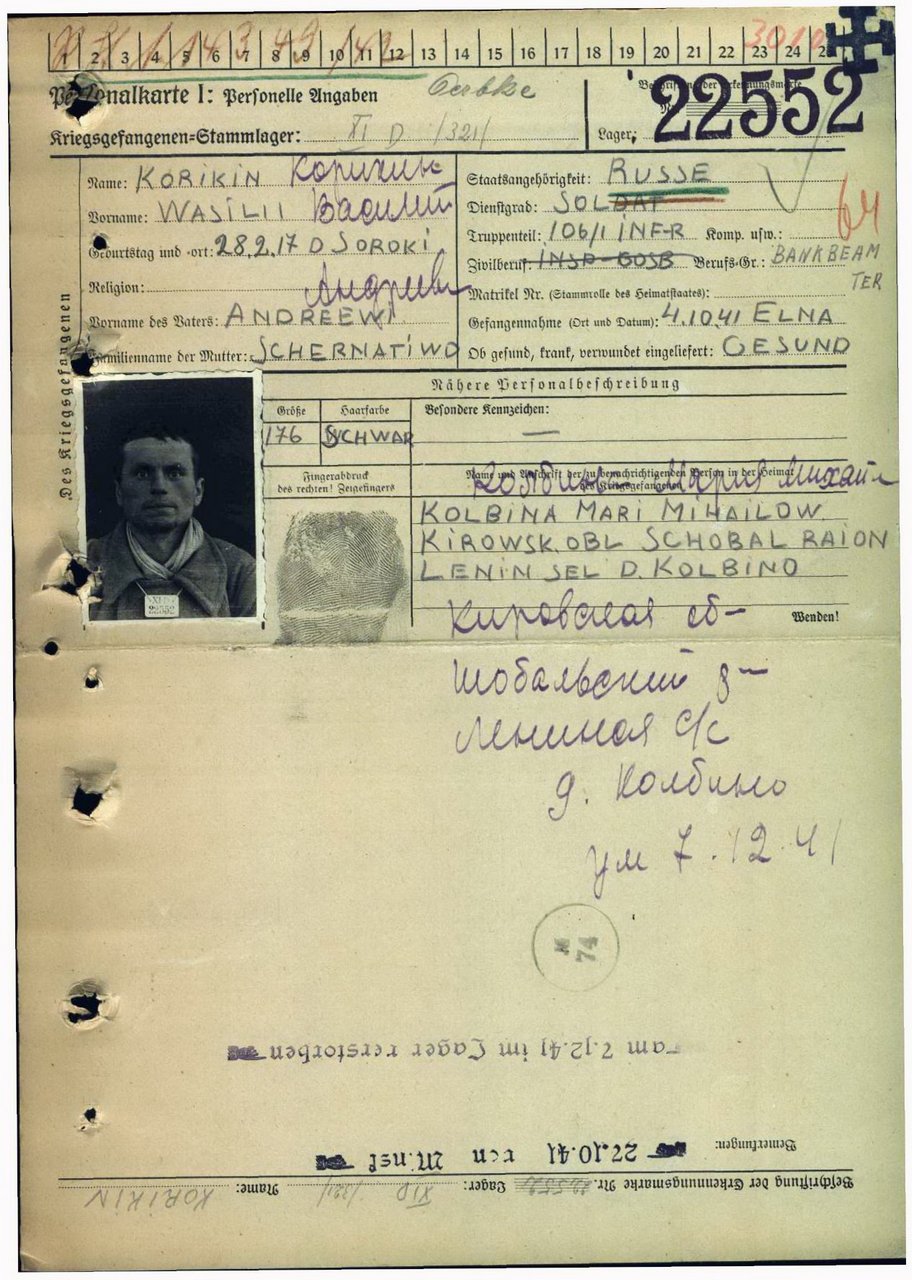 1 2 3 4 5 6 7 8 9 10 11 12 13 14 15 16 17 18 19 20 21 22 23 24 25
Personalkarte I: Personelle Angaben
Kriegsgefangenen=Stammlager: XI D /321/ Lager: 22552
Name: KORIKIN Корикин
Vorname: WASILII Василий
Geburtstag und -ort: 28.2.17 D SOROKI
Religion:
Андреев
Vorname des Vaters: ANDREEW
Familienname der Mutter: SCHERNATIWO
Staatsangehörigkeit: RUSSE
Dienstgrad: SOLDAT
Truppenteil: 106/1 INFR Komp. usw.:
Zivilberuf: INSP-GOSB Berufs-Gr.: BANKBEAMTER
Matrikel Nr. (Stammrolle des Heimatstaates):
Gefangennahme (Ort und Datum): 4.10.41 ELNA
Ob gesund, krank, verwundet eingeliefert: GESUND
Des Kriegsgefangenen
Nähere Personalbeschreibung
Größe Haarfarbe Besondere Kennzeichen:
176 SCHWAR —
Fingerabdruck
des rechten! Zeigefingers
Name und Anschrift der zu benachrichtigenden Person in der Heimat
des Kriegsgefangenen
Колбина Мария Михайл
KOLBINA MARI MIHAILOW
KIROWSK.OBL SCHOBAL RAION
LENIN SEL D. KOLBINO
Wenden!
XI D
22552
Кировская об-
Шобальский р-
Лениная с/с
д. Колбино
ум 7.12.41
M
74
am 7.12.41 im Lager verstorben
Bemerkungen: 27.10.41 von Minsk
Beschriftung der Erkennungsmarke Nr. 22552 Lager: XI D /321/ Name: KORIKIN